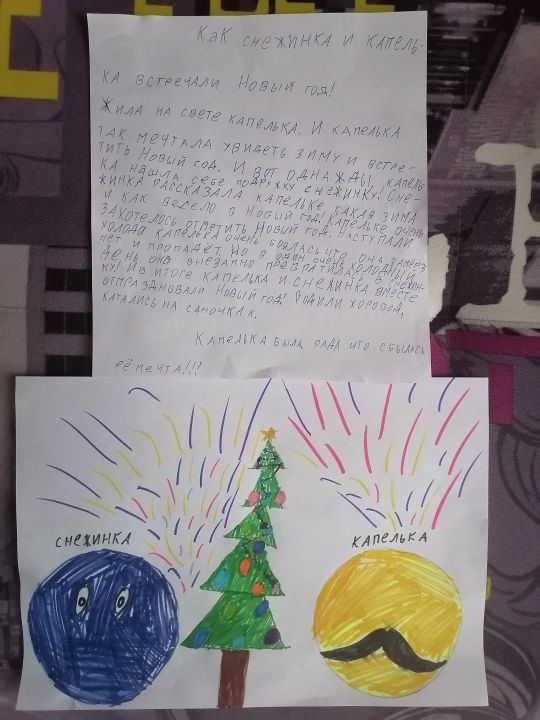 Как снежинка и капель-
ка встречали Новый год!
Жила на свете капелька. И капелька
так мечтала увидеть зиму и встре-
тить Новый год. И вот однажды, капель
ка нашла себе подружку снежинку. Сне-
жинка рассказала капельке какая зима
и как весело в Новый год! Капельке очень
захотелось отметить Новый год. Наступали
холода капелька очень боялась что она замёрз
нет и пропадёт. Но в один очень холодный
день она внезапно превратилась в снежин-
ку! И в итоге капелька и снежинка вместе
отпраздновали Новый год! Водили хоровод,
катались на саночках.
Капелька была рада что сбылась
её мечта!!!
снежинка
капелька